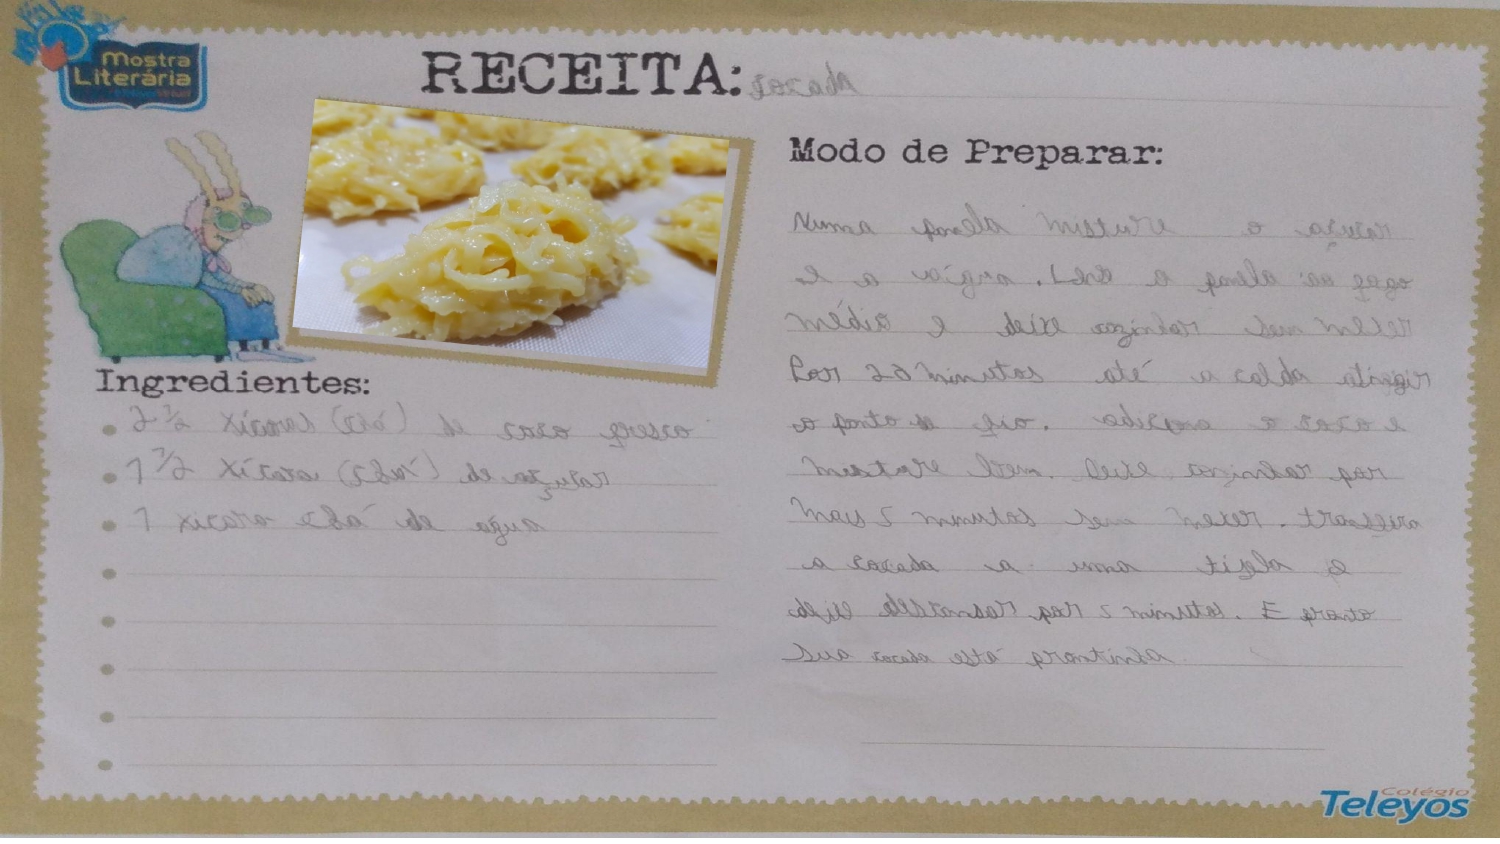 Mostra
Literária
RECEITA: cocada
Ingredientes:
2 ½ xícaras (chá) de coco fresco
1 ½ xícara (chá) de açúcar
1 xicara chá de água
Modo de Preparar:
Numa panela misture o açucar
e a água. Leve a panela ao fogo
médio e deixe cozinhar sem mexer
Por 20 minutos até a calda atingir
o ponto de fio. adicione o coco e
misture bem. Deixe cozinhar por
mais 5 minutos sem mexer. trasfira
a cocada a uma tigela e
deixe descansar por 5 minutos. E pronto
sua cocada está prontinha
Colégio
Teleyos